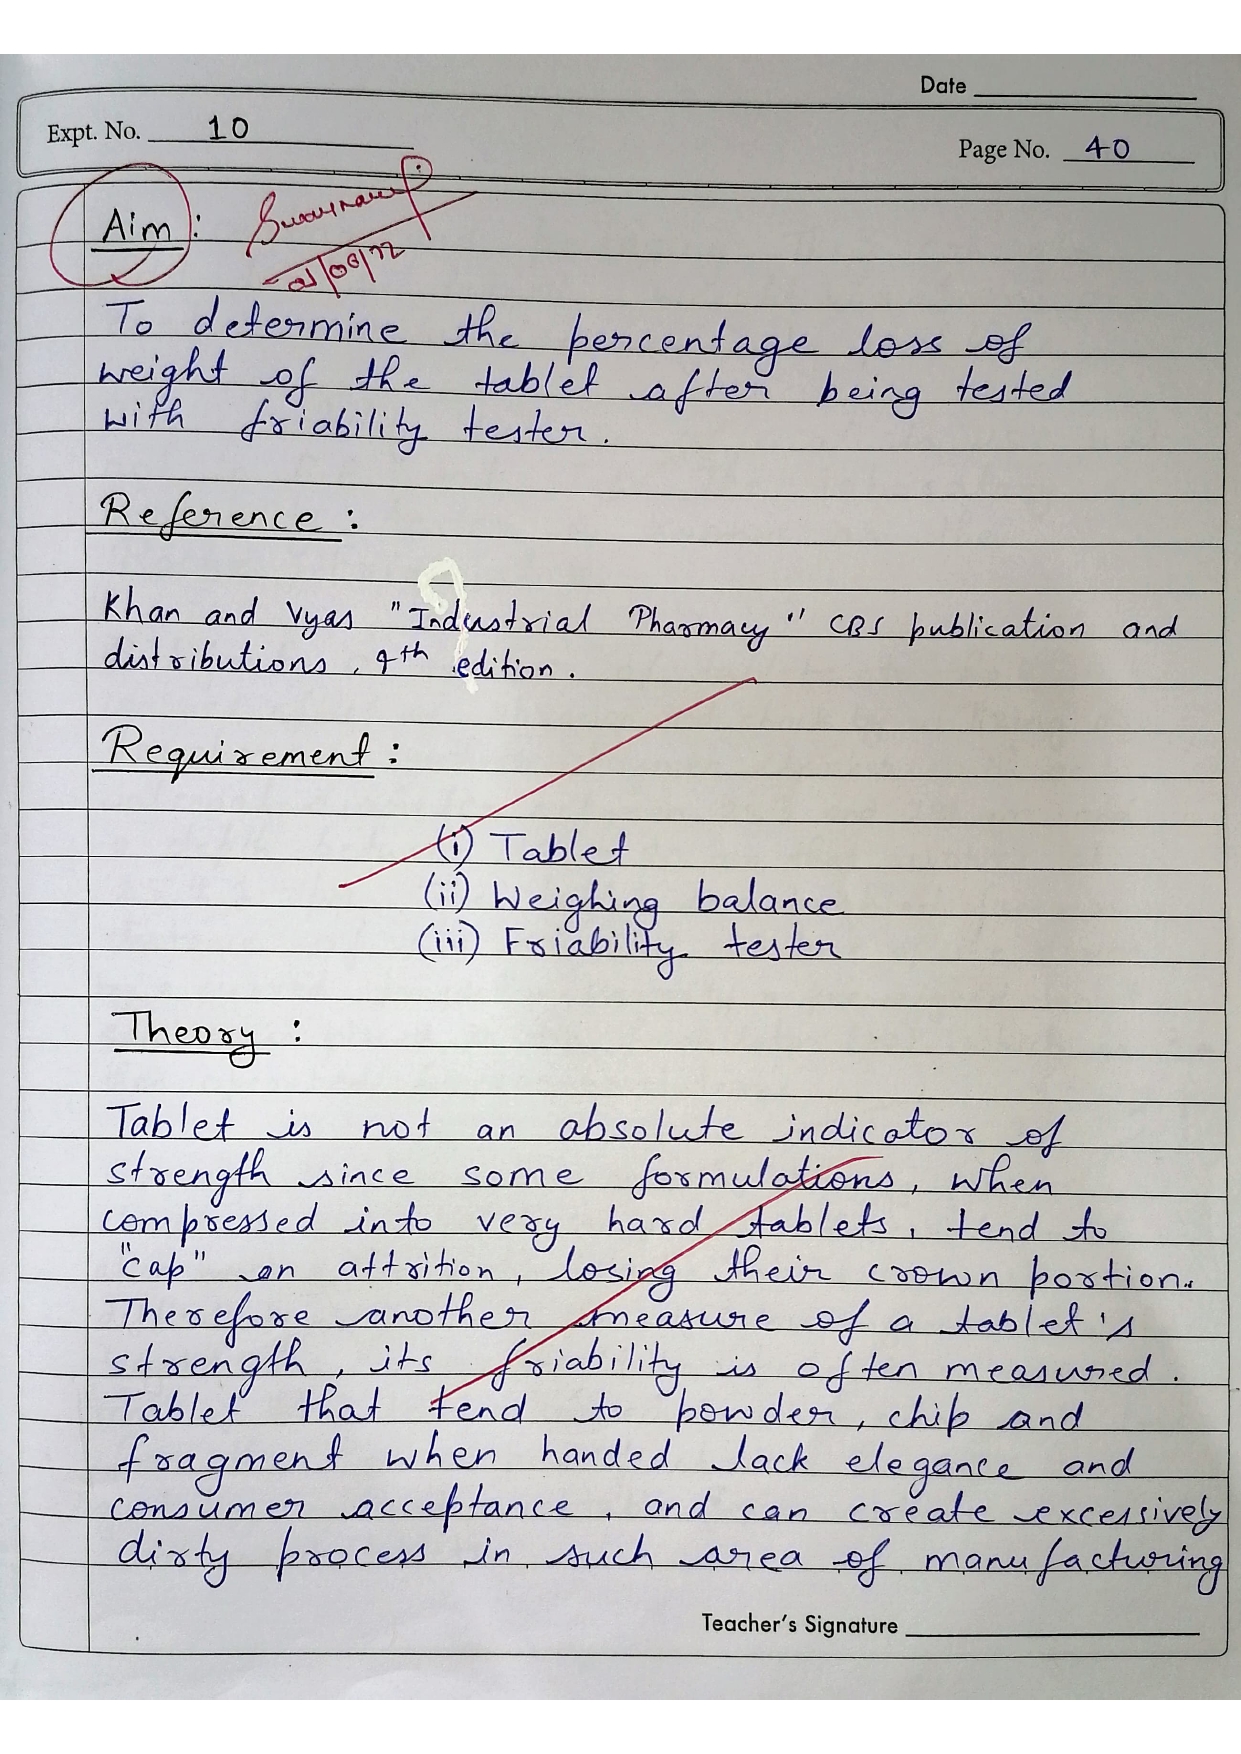 Date
Expt. No. 10
Page No. 40
Aim :
To determine the percentage loss of
weight of the tablet after being tested
with friability tester.
Reference :
Khan and Vyas "Industrial Pharmacy" CBS publication and
distributions, 4th edition.
Requirement :
(i) Tablet
(ii) Weighing balance
(iii) Friability tester
Theory :
Tablet is not an absolute indicator of
strength since some formulations, when
compressed into very hard tablets, tend to
"cap" on attrition, losing their crown portion.
Therefore another measure of a tablet's
strength, its friability is often measured.
Tablet that tend to powder, chip and
fragment when handed lack elegance and
consumer acceptance, and can create excessively
dirty process in such area of manufacturing
Teacher's Signature